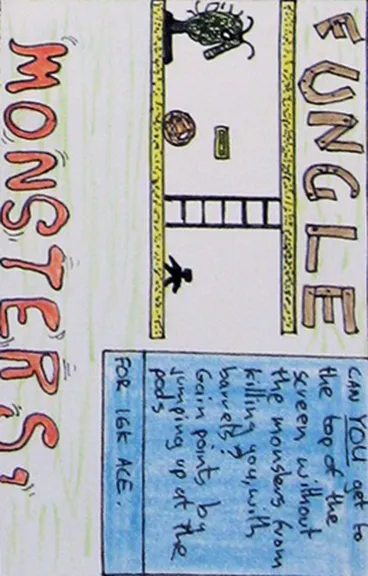 FUNGLE
MONSTERS,
CAN YOU get to
the top of the
screen without
the monsters from
killing you, with
barrels?
Gain points by
jumping up at the
pods
FOR 16K ACE.